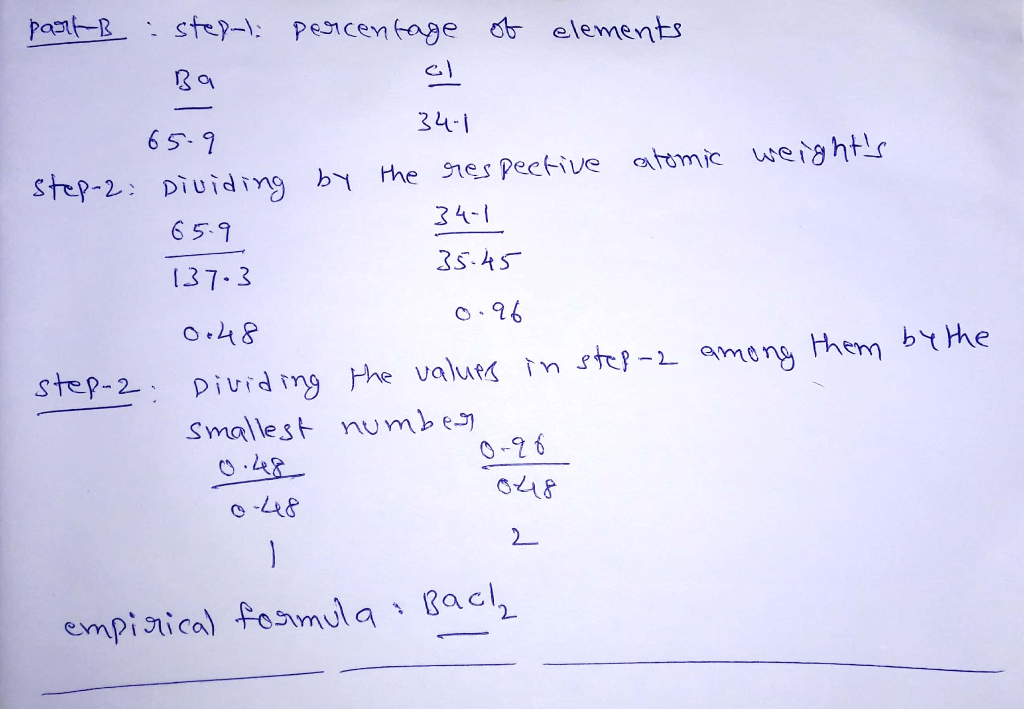 Part-B : step-1: percentage of elements
Ba Cl
65.9 34.1
step-2: Dividing by the respective atomic weight's
65.9 34.1
137.3 35.45
0.48 0.96
step-2: Dividing the values in step-2 among them by the
smallest number
0.48 0.96
0.48 0.48
1 2
empirical formula : BaCl2